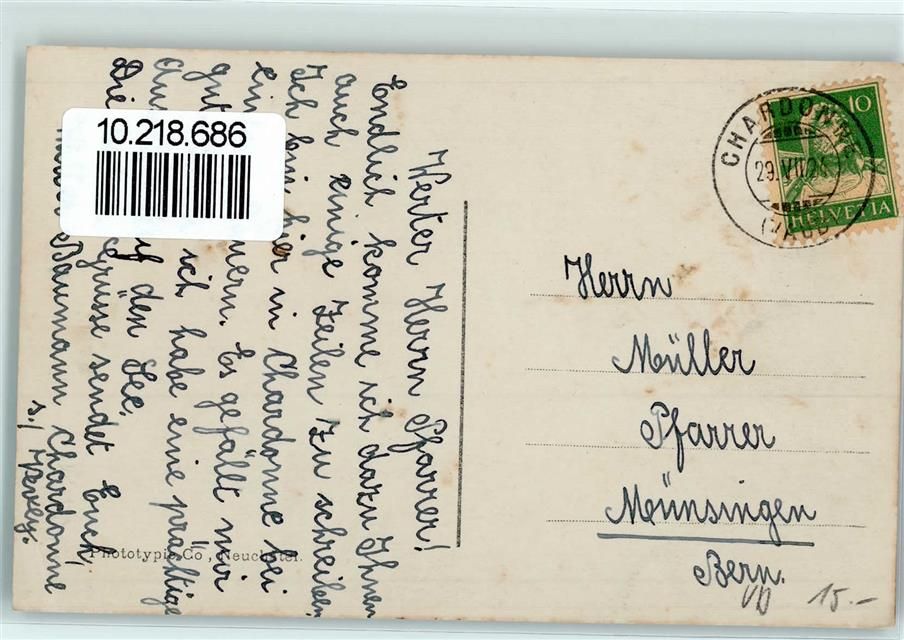 Werter Herrn Pfarrer!
Endlich komme ich dazu Ihnen
auch einige Zeilen zu schreiben
Ich bin hier in Chardonne bei
ein uern. Es gefällt mir
gut ich habe eine prächtige
Aus f den See.
Die Grüsse sendet Euch,
Baumann Chardonne
s./ Vevey.
Phototypie Co., Neuchâtel.
10.218.686
CHARDONNE
29.VII.24
(VAUD)
10
HELVETIA
Herrn
Müller
Pfarrer
Münsingen
Bern.
VD 15.-